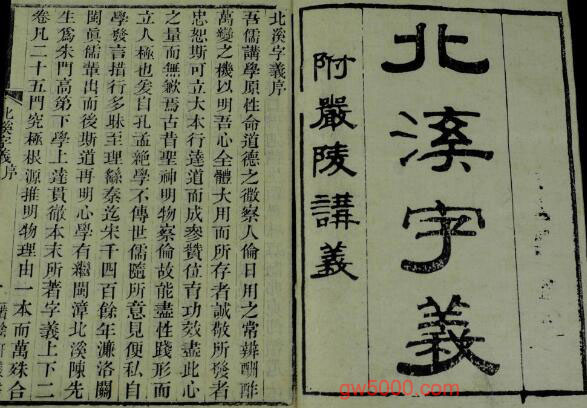 北溪字義
附嚴陵講義
北溪字義序
吾儒講學原性命道德之微察人倫日用之常辨酬酢
萬變之機以明吾心全體大用而所存者誠敬所發者
忠恕斯可立大本行達道而成參贊位育功效盡此心
之量而無歉焉古昔聖神明物察倫故能盡性踐形而
立人極也矣自孔孟絶學不傳世儒隨所意見便私自
學發言措行多昧至理繇秦迄宋千四百餘年濂洛關
閩眞儒輩出而後斯道再明心學有繼閩漳北溪陳先
生爲朱門高第下學上達貫徹本末所著字義上下二
卷凡二十五門究極根源推明物理由一本而萬殊合
北溪字義序
gw5000.com